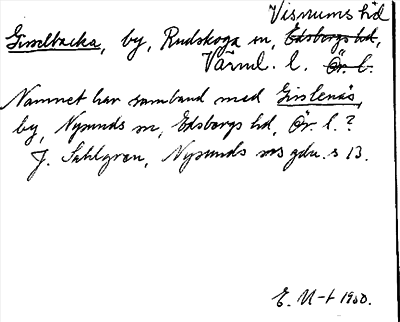 Visnums hd
Gisselbacka, by, Rudskoga sn, Edsbergs hd,
Värml. l. Ör. l.
Namnet har samband med Gislenäs,
by, Nysunds sn, Edsbergs hd, Ör. l.?
J. Sahlgren, Nysunds sns gdn. s 13.
E. M-t 1960.